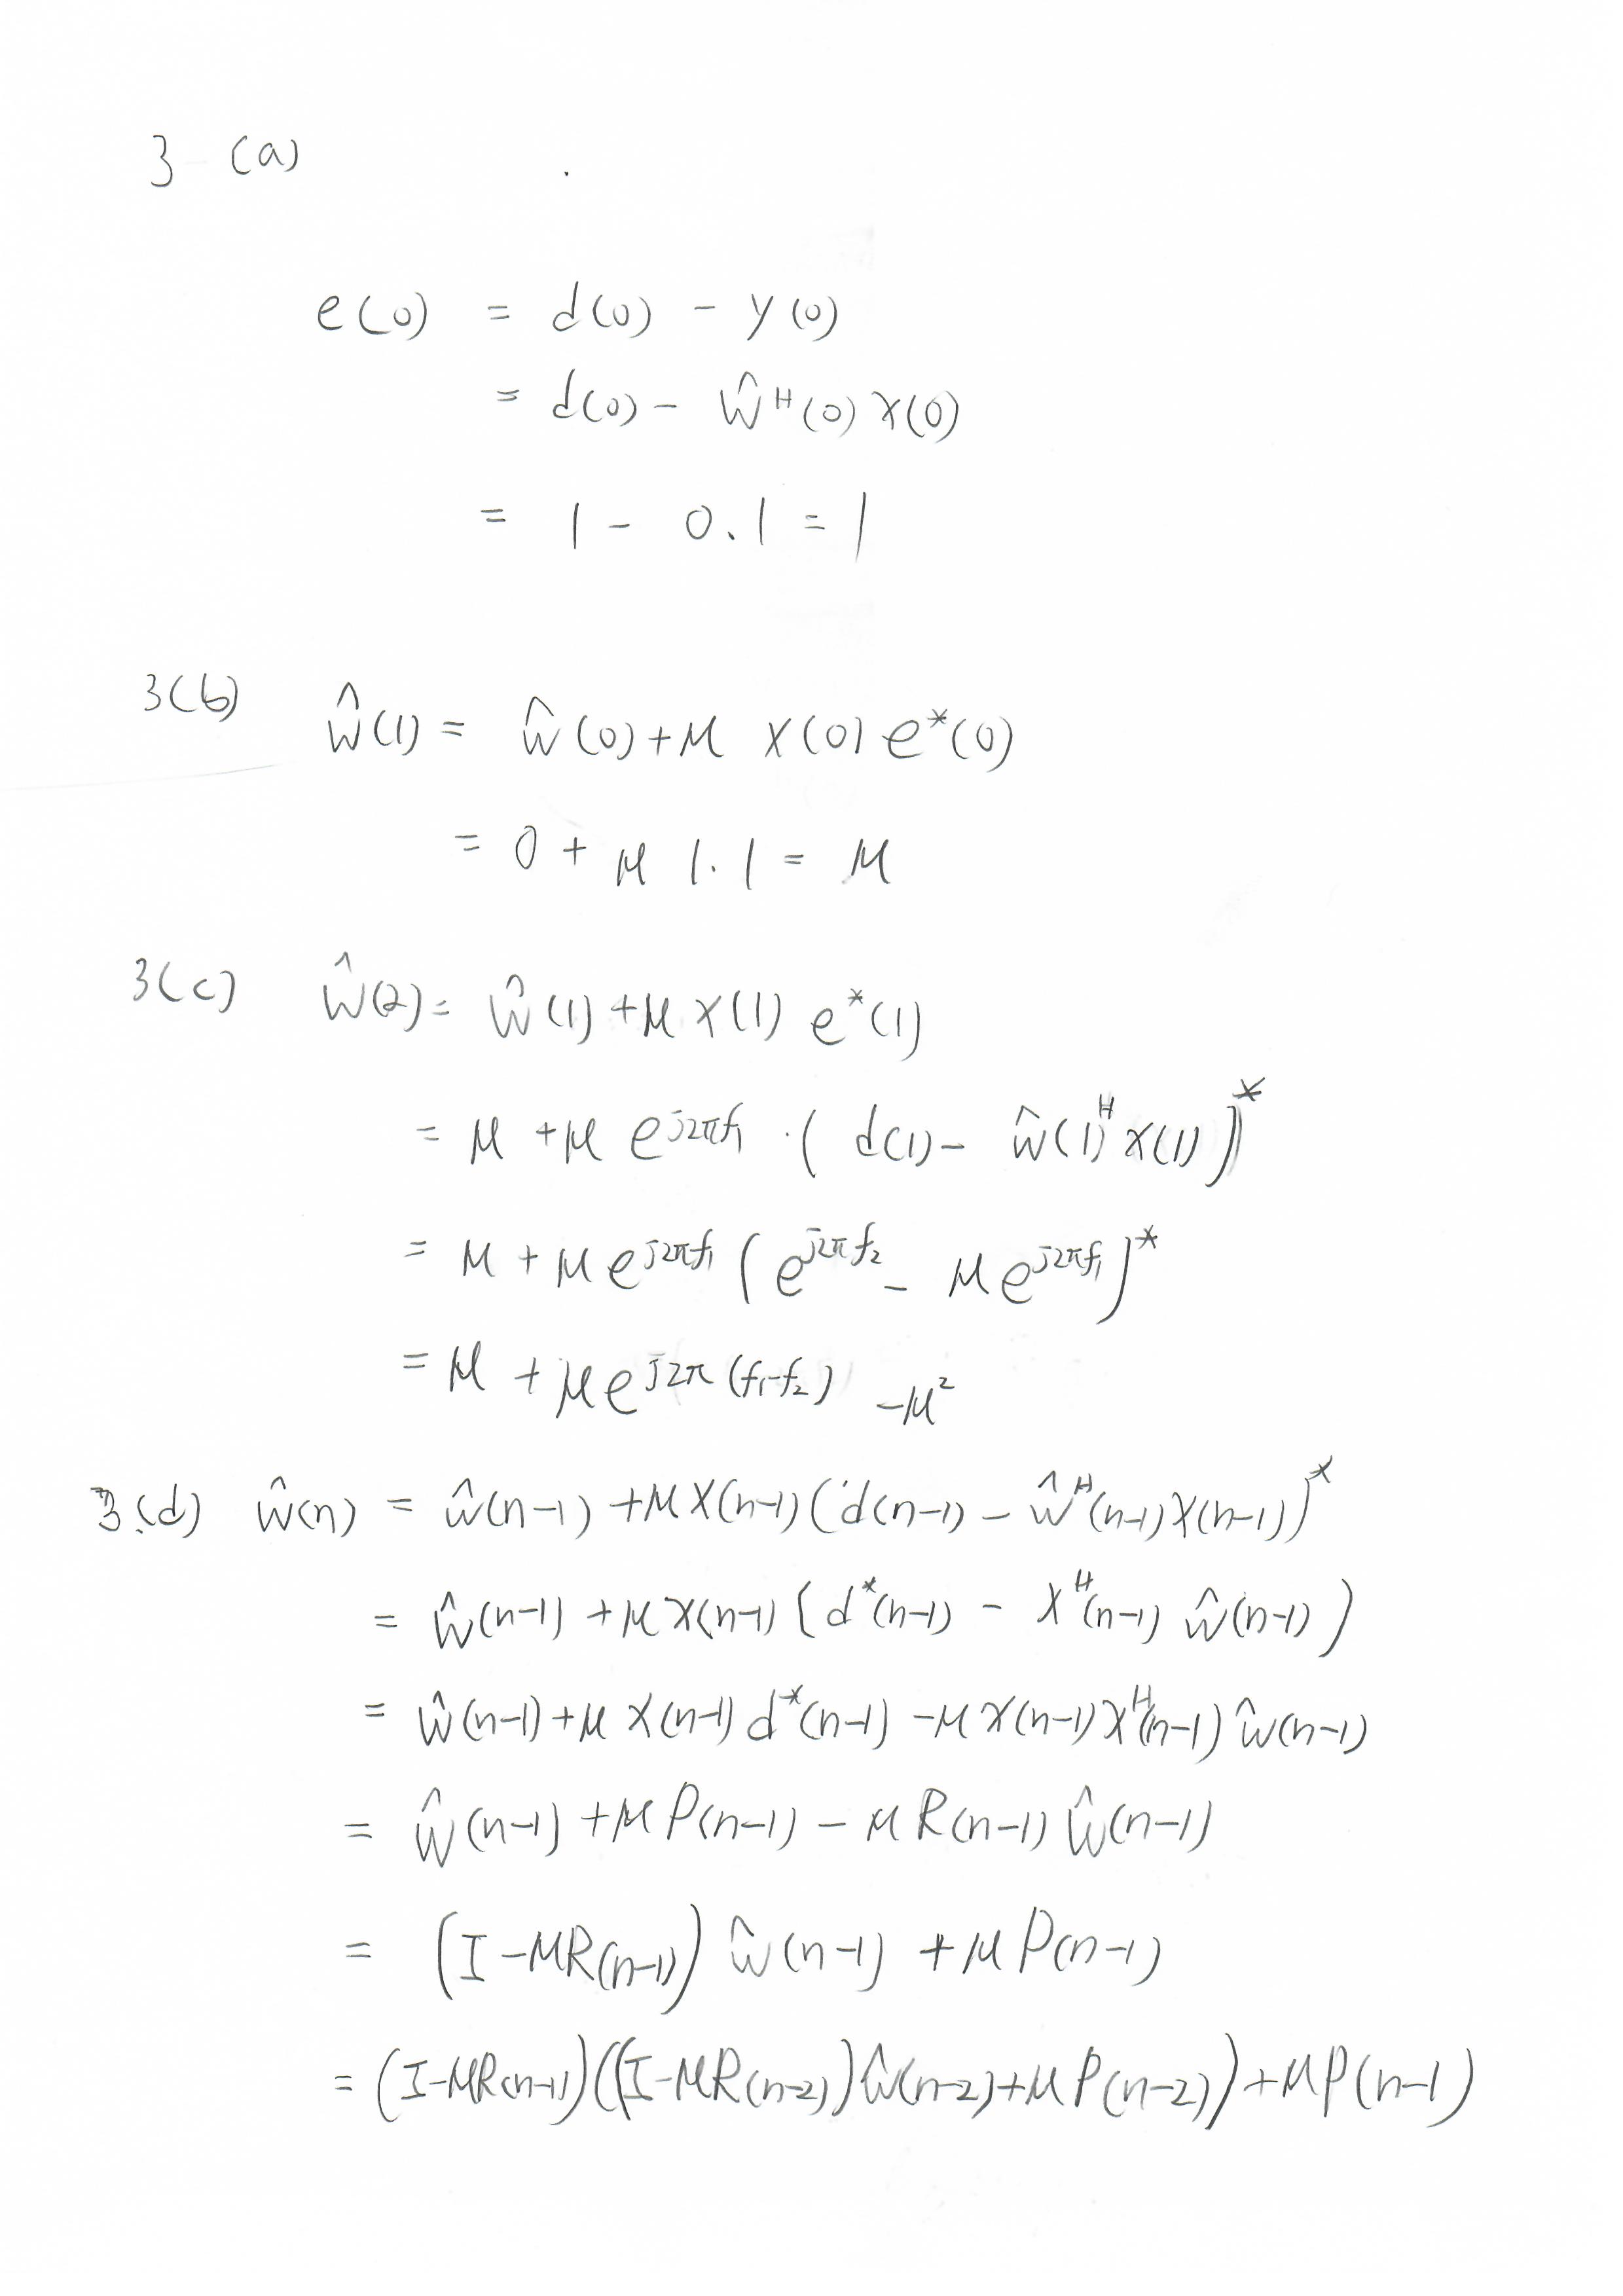 3 (a)
e(0) = d(0) - y(0)
= d(0) - ŵᴴ(0) x(0)
= 1 - 0.1 = 1
3(b) ŵ(1) = ŵ(0) + μ x(0) e*(0)
= 0 + μ 1.1 = μ
3(c) ŵ(2) = ŵ(1) + μ x(1) e*(1)
= μ + μ e^{j2πf₁} · (d(1) - ŵ(1)ᴴ x(1))*
= μ + μ e^{j2πf₁} (e^{j2πf₂} - μ e^{j2πf₁})*
= μ + μ e^{j2π(f₁-f₂)} - μ²
3.(d) ŵ(n) = ŵ(n-1) + μ x(n-1) (d(n-1) - ŵᴴ(n-1) x(n-1))*
= ŵ(n-1) + μ x(n-1) (d*(n-1) - xᴴ(n-1) ŵ(n-1))
= ŵ(n-1) + μ x(n-1) d*(n-1) - μ x(n-1) xᴴ(n-1) ŵ(n-1)
= ŵ(n-1) + μ P(n-1) - μ R(n-1) ŵ(n-1)
= (I - μR(n-1)) ŵ(n-1) + μ P(n-1)
= (I - μR(n-1)) ((I - μR(n-2)) ŵ(n-2) + μ P(n-2)) + μ P(n-1)